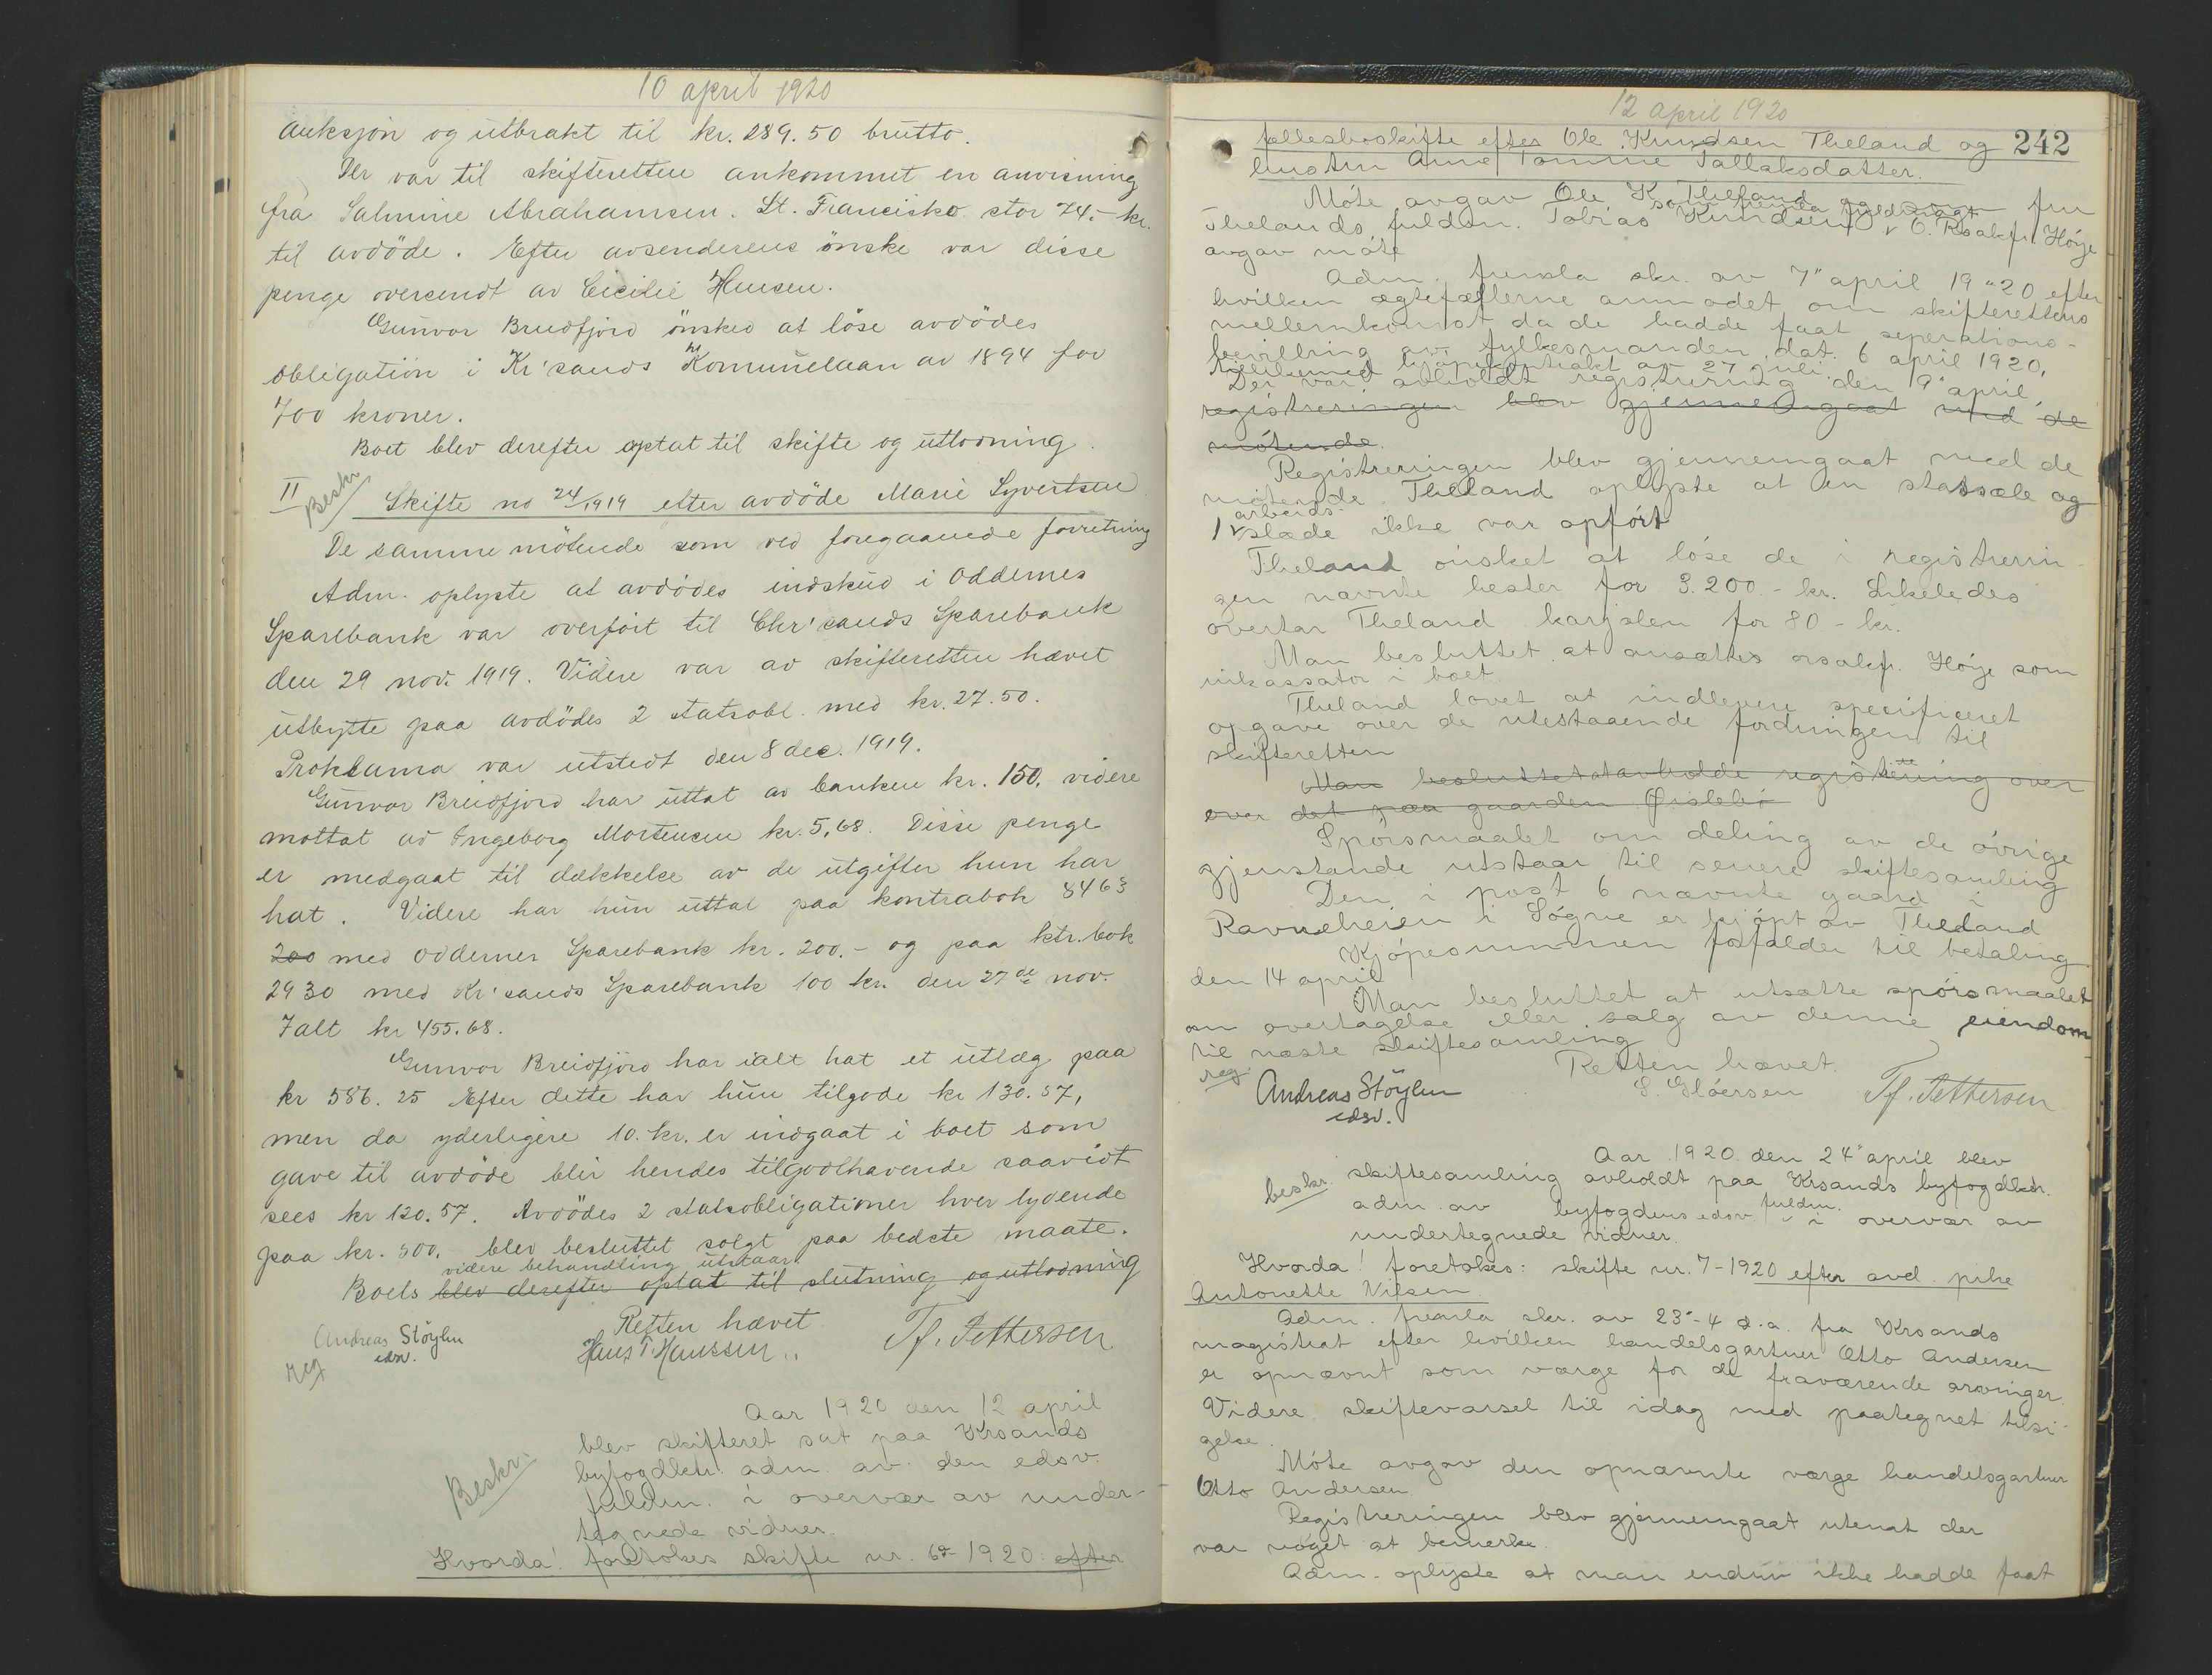 10 april 1920
Auksjon og utbrakt til kr. 289.50 brutto.
Der var til skifteretten ankommet en anvisning
fra Salmine Abrahamsen. St. Francisko stor 74.- kr.
til avdöde. Efter avsenderens önske var disse
penge oversendt av Cicilie Hansen.
Gunvor Breidfjord önsked at löse avdödes
obligation i Kr'sands Kommunelaan av 1894 for
700 kroner.
Boet blev derefter optat til skifte og utlodning.
II
Beskr
Skifte no 24/1919 efter avdöde Marie Syvertsen
De samme mötende som ved foregaaende forretning
Adm. oplyste at avdödes indskud i Oddernes
Sparebank var overfört til Chr'sands Sparebank
den 29 nov. 1919. Videre var av skifteretten hævet
utbytte paa avdödes 2 statsobl. med kr. 27.50.
Proklama var utstedt den 8 dec. 1919.
Gunvor Breidfjord har uttat av banken kr. 150, videre
mottat av Ingeborg Mortensen kr. 5,68. Disse penge
er medgaat til dækkelse av de utgifter hun har
hat. Videre har hun uttat paa kontrabok 8463
200 med Oddernes Sparebank kr. 200.- og paa ktr. bok
2930 med Kr'sands Sparebank 100 kr. den 27de nov.
Ialt kr 455.68.
Gunvor Breidfjord har ialt hat et utlæg paa
kr 586.25 Efter dette har hun tilgode kr 130.57,
men da yderligere 10. kr. er indgaat i boet som
gave til avdöde blir hendes tilgodhavende saavidt
sees kr 120.57. Avdödes 2 statsobligationer hver lydende
paa kr. 500, blev besluttet solgt paa bedste maate.
videre behandling utstaar
Boets blev derefter optat til slutning og utlodning
Retten hævet
Andreas Stöylen
edsv.
Hans T. Hanssen
Tf. Pettersen
reg
Aar 1920 den 12 april
blev skifteret sat paa Krsands
Beskr.
byfogdktr. adm. av den edsv.
fuldm. i overvær av under-
tegnede vidner.
Hvorda! foretokes skifte nr. 6-1920 efter
12 april 1920
242
fællesboskifte efter Ole Knudsen Theland og
hustru Anne Tomine Tallaksdatter.
Möte avgav Ole K. Theland og fru
som fremla fuldmagt
Thelands fuldm. Tobias Knudsen O. Rsakf. Höye
avgav möte
Adm. fremla skr. av 7" april 1920 efter
hvilken ægtefællerne anmodet om skifterettens
mellemkomst da de hadde faat seperations-
bevillning av fylkesmanden dat. 6 april 1920,
likeledes kjöpekontrakt av 27 juli.
Der var avholdt registrering den 9" april,
registreringen blev gjennemgaat med de
mötende.
Registreringen blev gjennemgaat med de
mötende. Theland oplyste at en stassæle og
arbeids-
1 slæde ikke var opfört
Theland önsket at löse de i registrerin-
gen nævnte hester for 3.200.- kr. Likeledes
overtar Theland karjolen for 80 - kr.
Man besluttet at ansættes orsakf. Höye som
inkassator i boet.
Theland lovet at indlevere specificeret
opgave over de utestaaende fordringer til
skifteretten
Man besluttet at avholde registrering over
over det paa gaarden Öislebö
Spörsmaalet om deling av de övrige
gjenstande utstaar til senere skiftesamling
Den i post 6 nævnte gaard i
Ravneheien i Sögne er kjöpt av Theland
Kjöpesummen forfalder til betaling
den 14 april
Man besluttet at utsætte spörsmaalet
om overtagelse eller salg av denne eiendom
til næste skiftesamling
Retten hævet.
reg
Andreas Stöylen
edsv.
S. Glöersen
Tf. Pettersen
Aar 1920 den 24" april blev
beskr.
skiftesamling avholdt paa Krsands byfogdktr.
adm. av byfogdens edsv. fuldm. i overvær av
undertegnede vidner.
Hvorda! foretokes: skifte nr. 7-1920 efter avd. pike
Antonette Nilsen
Adm. fremla skr. av 23-4 d.a. fra Krsands
magistrat efter hvilken handelsgartner Otto Andersen
er opnævnt som værge for de fraværende arvinger.
Videre skiftevarsel til idag med paategnet tilsi-
gelse.
Möte avgav den opnævnte værge handelsgartner
Otto Andersen.
Registreringen blev gjennemgaat utenat der
var noget at bemerke.
Adm. oplyste at man endnu ikke hadde faat